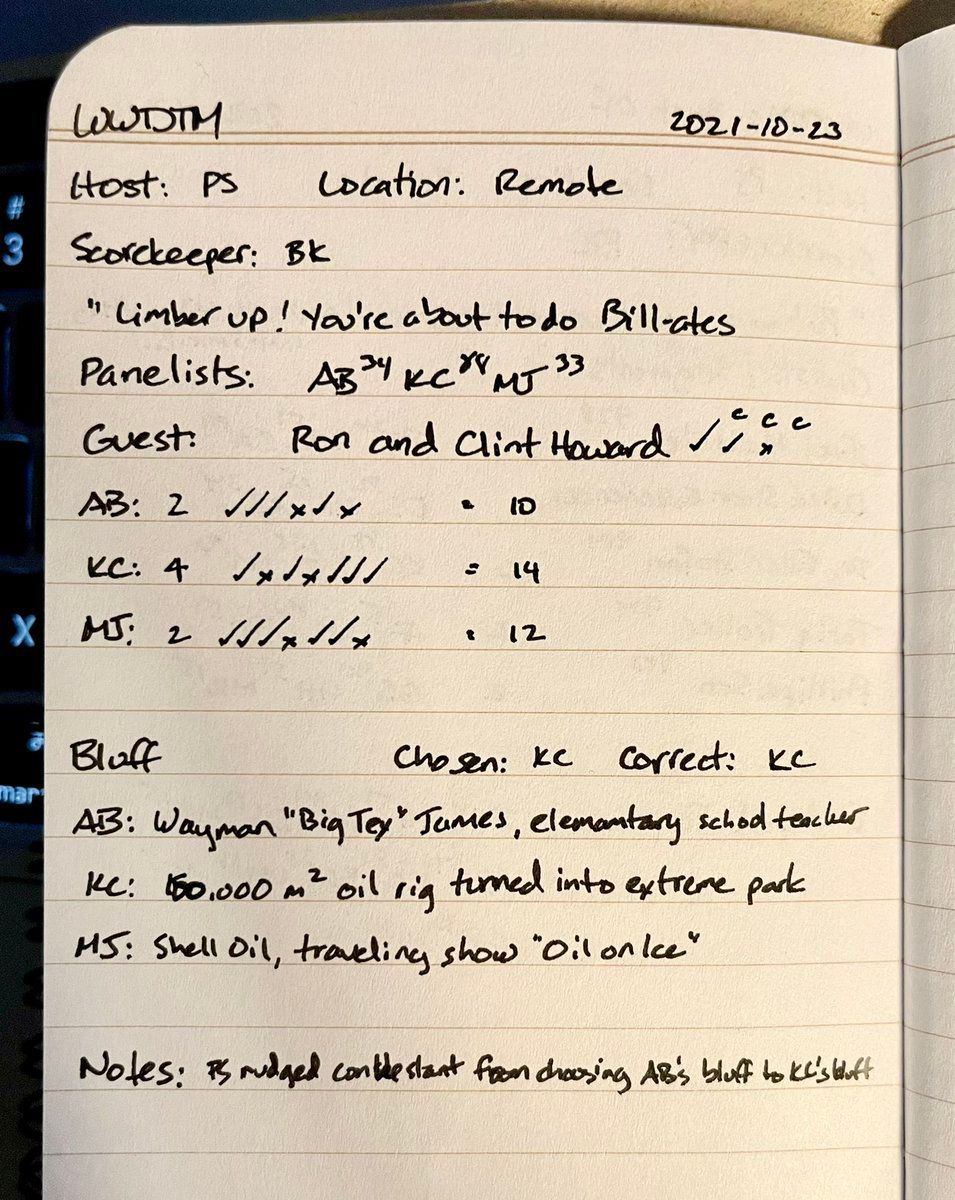 WWDTM 2021-10-23
Host: PS Location: Remote
Scorekeeper: BK
" Limber up! You're about to do Bill-ates
Panelists: AB 34 KC MJ 33
Guest: Ron and Clint Howard ✓ ✓ x c c c
AB: 2 ✓✓✓x✓x = 10
KC: 4 ✓x✓x✓✓✓ = 14
MJ: 2 ✓✓✓x✓✓x = 12
Bluff Chosen: KC Correct: KC
AB: Wayman "Big Tex" James, elemamtary school teacher
KC: 150,000 m² oil rig turned into extreme park
MJ: Shell Oil, traveling show "Oil on Ice"
Notes: PS nudged contestant from choosing AB's bluff to KC's bluff
#
3
X